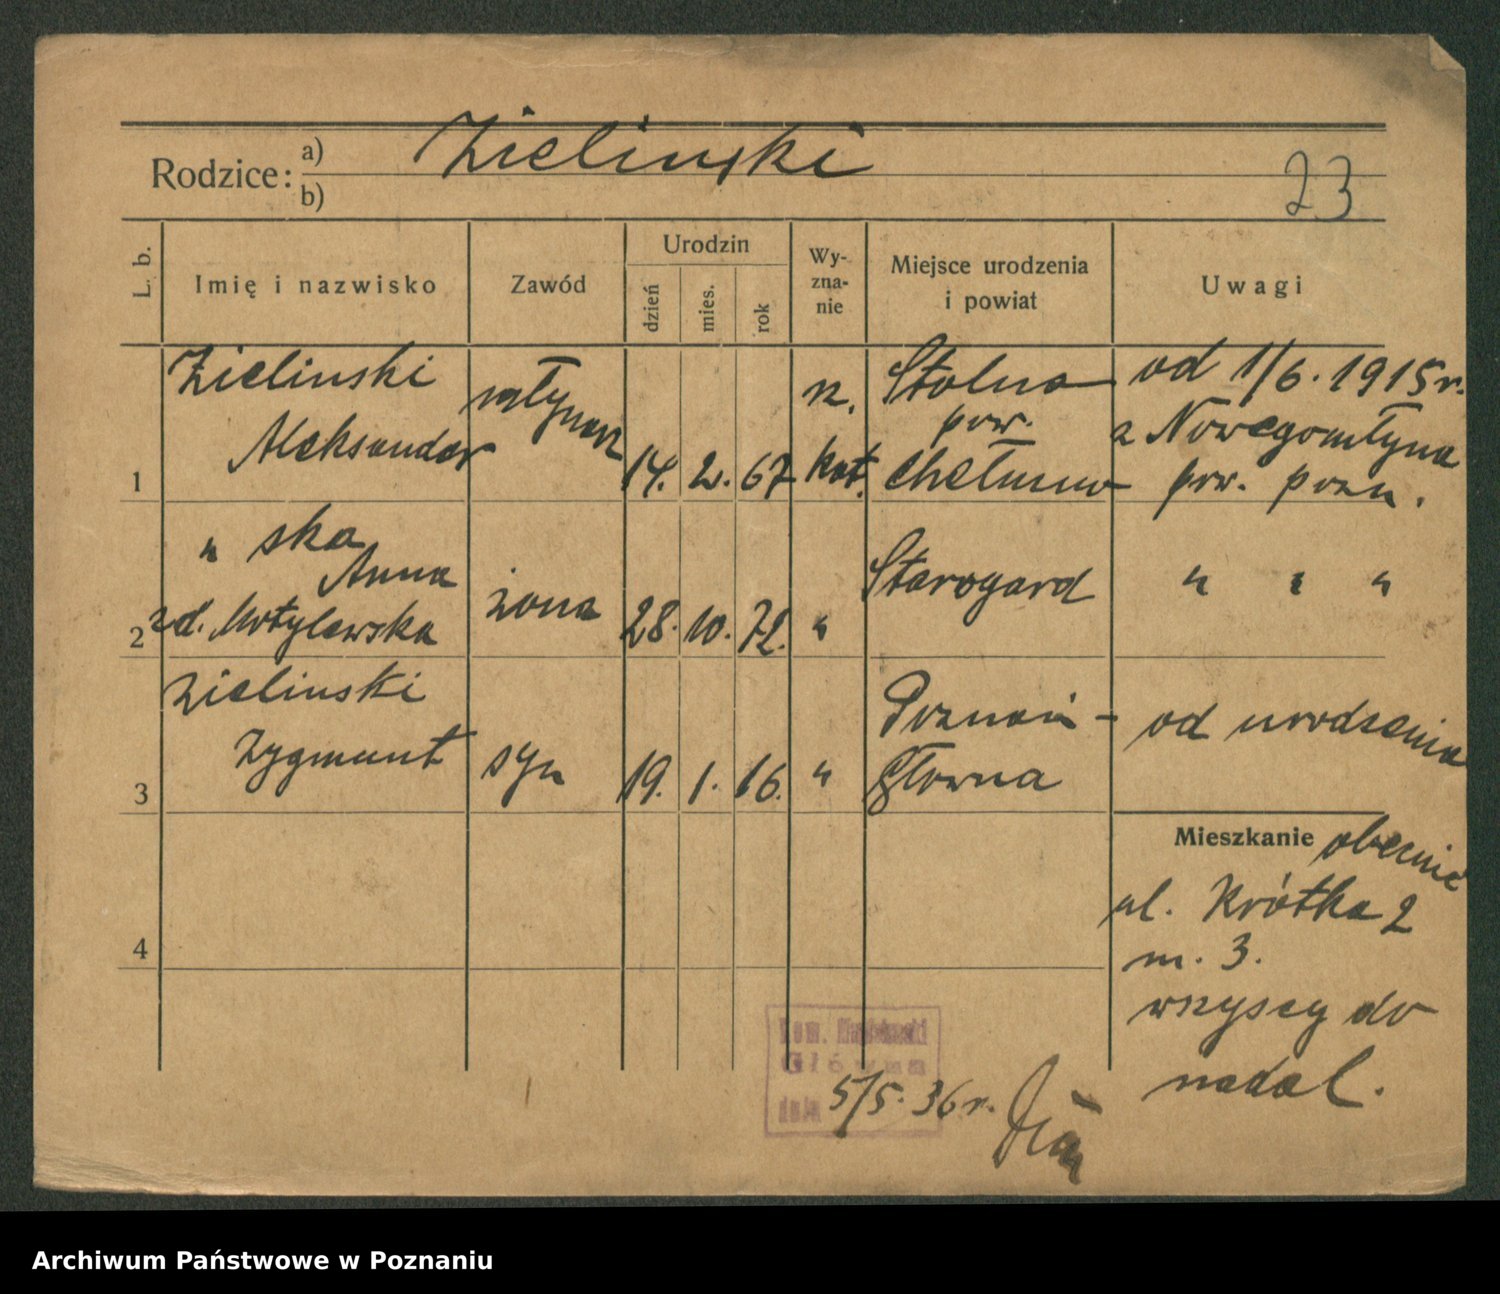 Rodzice:
a) Zielinski
b)
23
L. b.
Imię i nazwisko
Zawód
Urodzin
dzień
mies.
rok
Wy-
zna-
nie
Miejsce urodzenia
i powiat
Uwagi
1
Zielinski
Aleksander
młynarz
14. 2. 67
rz.
kat.
Stolno
pow.
Chełmno
od 1/6. 1915 r.
z Nowegomłyna
pow. pozn.
2
" ska
Anna
zd. Motylewska
żona
28. 10. 72.
"
Starogard
" " "
3
Zielinski
Zygmunt
syn
19. 1. 16.
"
Poznań-
Główna
od urodzenia
4
Mieszkanie obecnie
ul. Krótka 2
m. 3.
wszyscy do
nadal.
Kom.
Główna
dnia 5/5. 36 r.
Archiwum Państwowe w Poznaniu